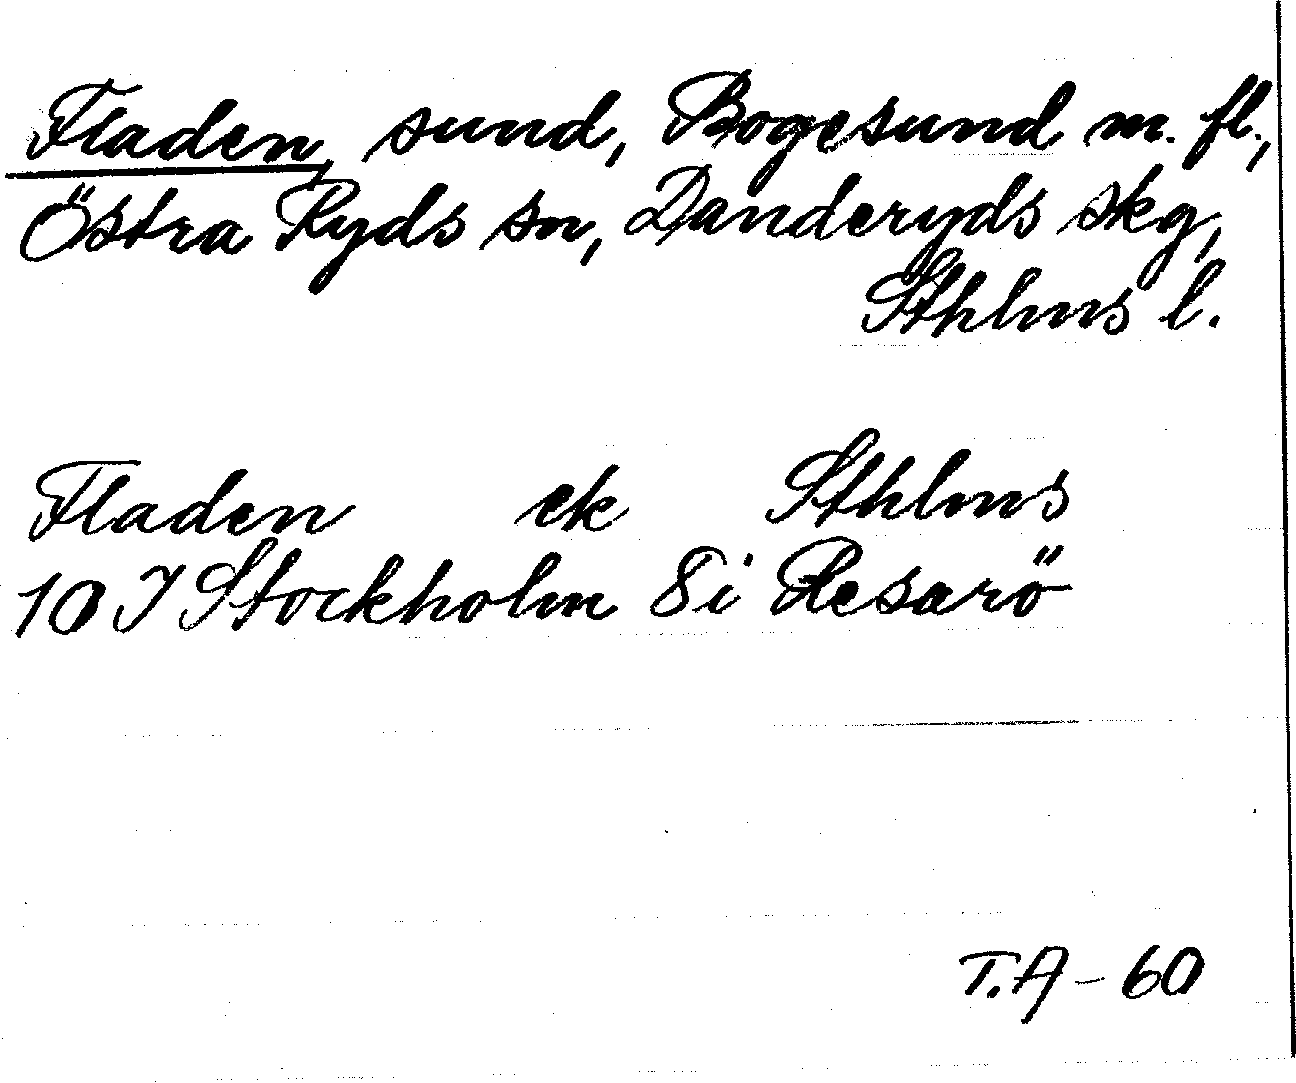 Fladen, sund, Bogesund m. fl.,
Östra Ryds sn, Danderyds skg,
Sthlms l.
Fladen ek Sthlms
10 I Stockholm 8 i Resarö
T.A - 60